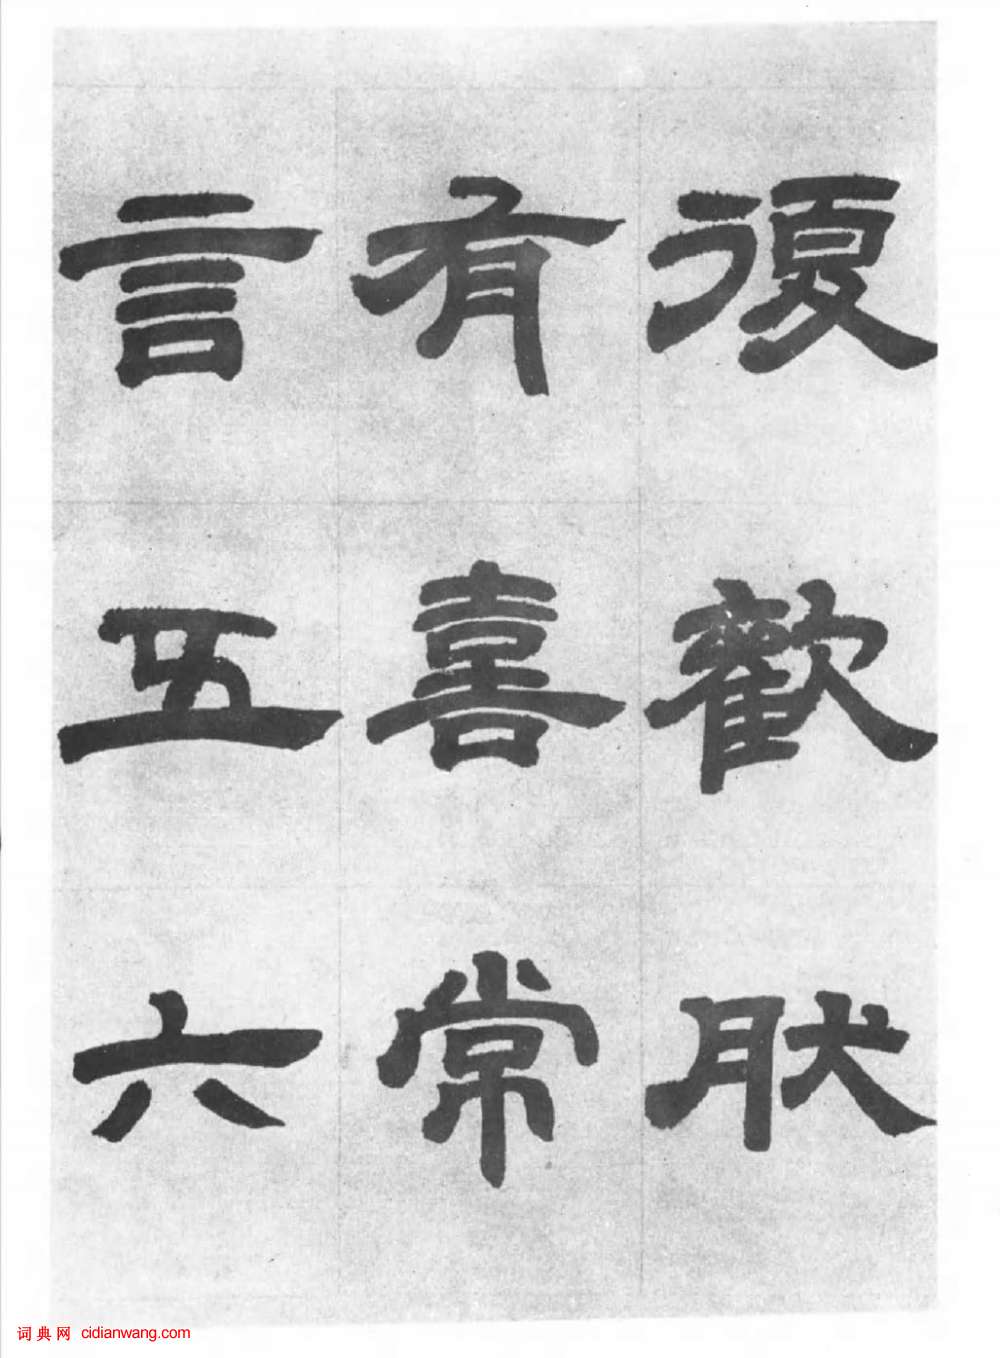 復歡肰
有喜常
言五六
词典网 cidianwang.com